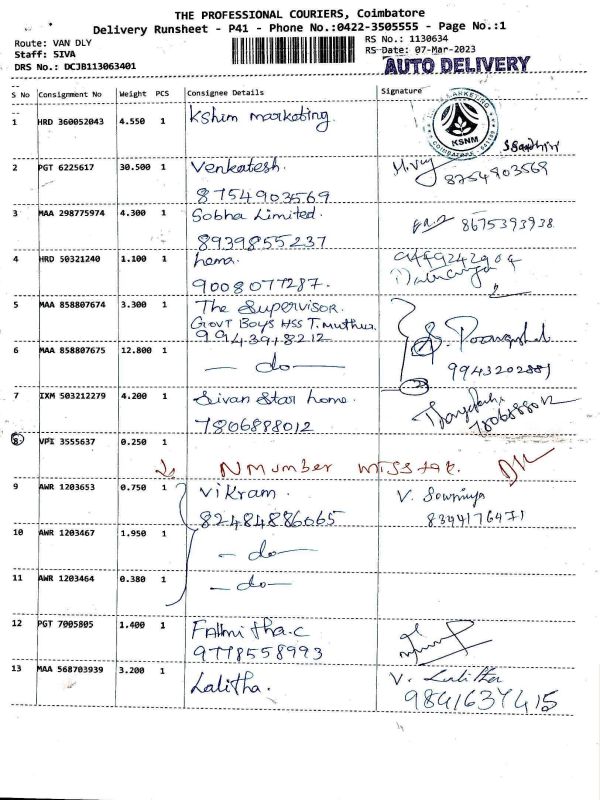 THE PROFESSIONAL COURIERS, Coimbatore
Delivery Runsheet - P41 - Phone No.:0422-3505555 - Page No.:1
Route: VAN DLY
Staff: SIVA
DRS No.: DCJB113063401
RS No.: 1130634
RS Date: 07-Mar-2023
AUTO DELIVERY
S No Consignment No Weight PCS Consignee Details Signature
1 HRD 360052043 4.550 1 Kshim marketing
MARKETING KSNM COIMBATORE
2 PGT 6225617 30.500 1 Venkatesh.
8754903569
8754903569
3 MAA 298775974 4.300 1 Sobha Limited. 8675393938
8939855237
4 HRD 50321240 1.100 1 hema. 9449242904
9008077287.
5 MAA 858807674 3.300 1 The Supervisor.
Govt Boys HSS T.muthur
9943918212
6 MAA 858807675 12.800 1 — do —
9943202881
7 IXM 503212279 4.200 1 Sivan Star home.
7806888012
7806888012
8 VPI 3555637 0.250 1
NMumber misstak.
9 AWR 1203653 0.750 1 Vikram. V. Sowmiya
82484886065 8344176471
10 AWR 1203467 1.950 1
— do —
11 AWR 1203464 0.380 1 — do —
12 PGT 7005805 1.400 1 Fathmi tha.c
9778558993
13 MAA 568703939 3.200 1 Lalitha. V. Lalitha
9841637415